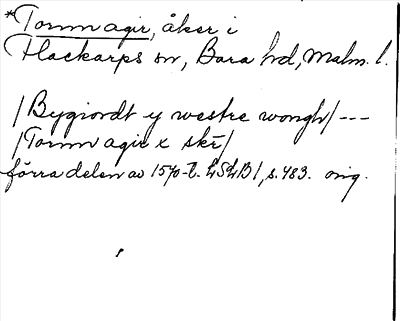 *Tormm agir, åker i
Flackarps sn, Bara hd, Malm. l.
/Bygiordt y westre wongh/ ---
/Tormm agir x skr/
förra delen av 1570-t. LSLB1, s. 483. orig.